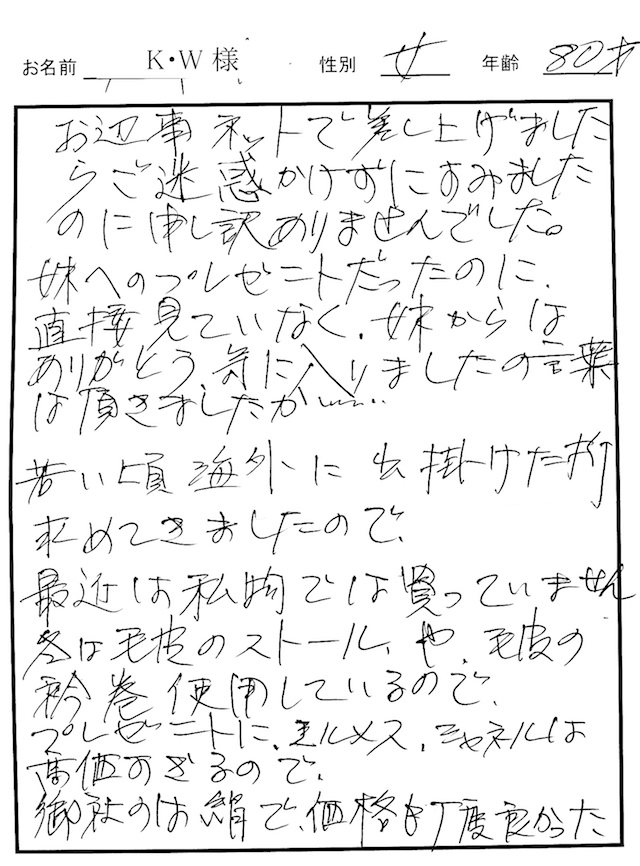 お名前 K・W様 性別 女 年齢 80才
お辺事ネットで差し上げました
らご迷惑かけずにすみました
のに申し訳ありませんでした。
妹へのプレゼントだったのに、
直接見ていなく、妹からは
ありがとう気に入りましたの言葉
は頂きましたが……
若い頃海外に出掛けた折
求めてきましたので、
最近は私物では買っていません
冬は毛皮のストール、や、毛皮の
衿巻使用しているので、
プレゼントに、エルメス、シャネルは
高価すぎるので、
御社のは絹で、価格も丁度良かった